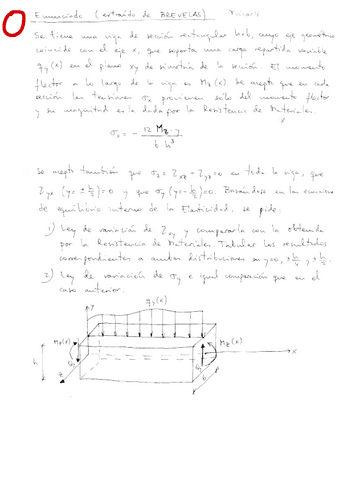 Enunciado (extraído de BREVELAS)
Se tiene una viga de sección rectangular b×h, cuyo eje geométrico
coincide con el eje x, que soporta una carga repartida variable
qy(x) en el plano xy de simetría de la sección. El momento
flector a lo largo de la viga es Mz(x). Se acepta que en cada
sección las tensiones σx provienen sólo del momento flector
y su magnitud es la dada por la Resistencia de Materiales.
σx = - 12 Mz·y / b·h³
Se acepta también que σz = τxz = τyz = 0 en toda la viga, que
τyx (y = ± h/2) = 0 y que σy (y = - h/2) = 0. Basándose en las ecuaciones
de equilibrio interno de la Elasticidad, se pide:
1) Ley de variación de τxy y compararla con la obtenida
por la Resistencia de Materiales. Tabular los resultados
correspondientes a ambas distribuciones en y=0, ± h/4 y ± h/2.
2) Ley de variación de σy e igual comparación que en el
caso anterior.
qy(x)
y
Mz(x)
Mz(x)
x
h
z
b